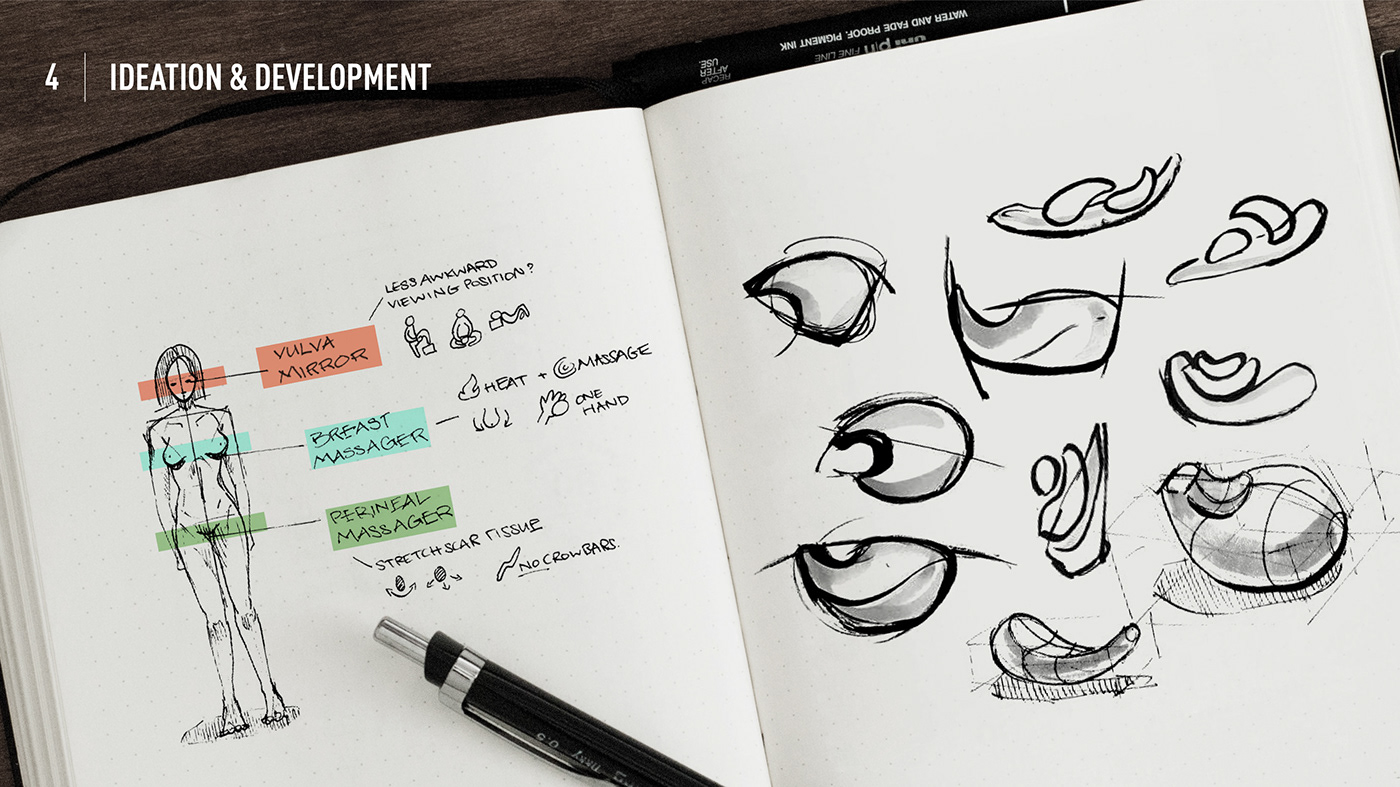 4
IDEATION & DEVELOPMENT
WATER AND FADE PROOF. PIGMENT INK
uni pin FINE LINE
RECAP
AFTER
USE.
LESS AWKWARD
VIEWING POSITION?
VULVA
MIRROR
HEAT + MASSAGE
ONE
HAND
BREAST
MASSAGER
PERINEAL
MASSAGER
STRETCH SCAR TISSUE
NO CROWBARS.
0.5